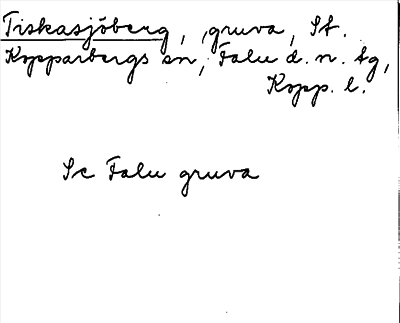 Tiskasjöberg, gruva, St.
Kopparbergs sn, Falu d. n. tg,
Kopp. l.
Se Falu gruva